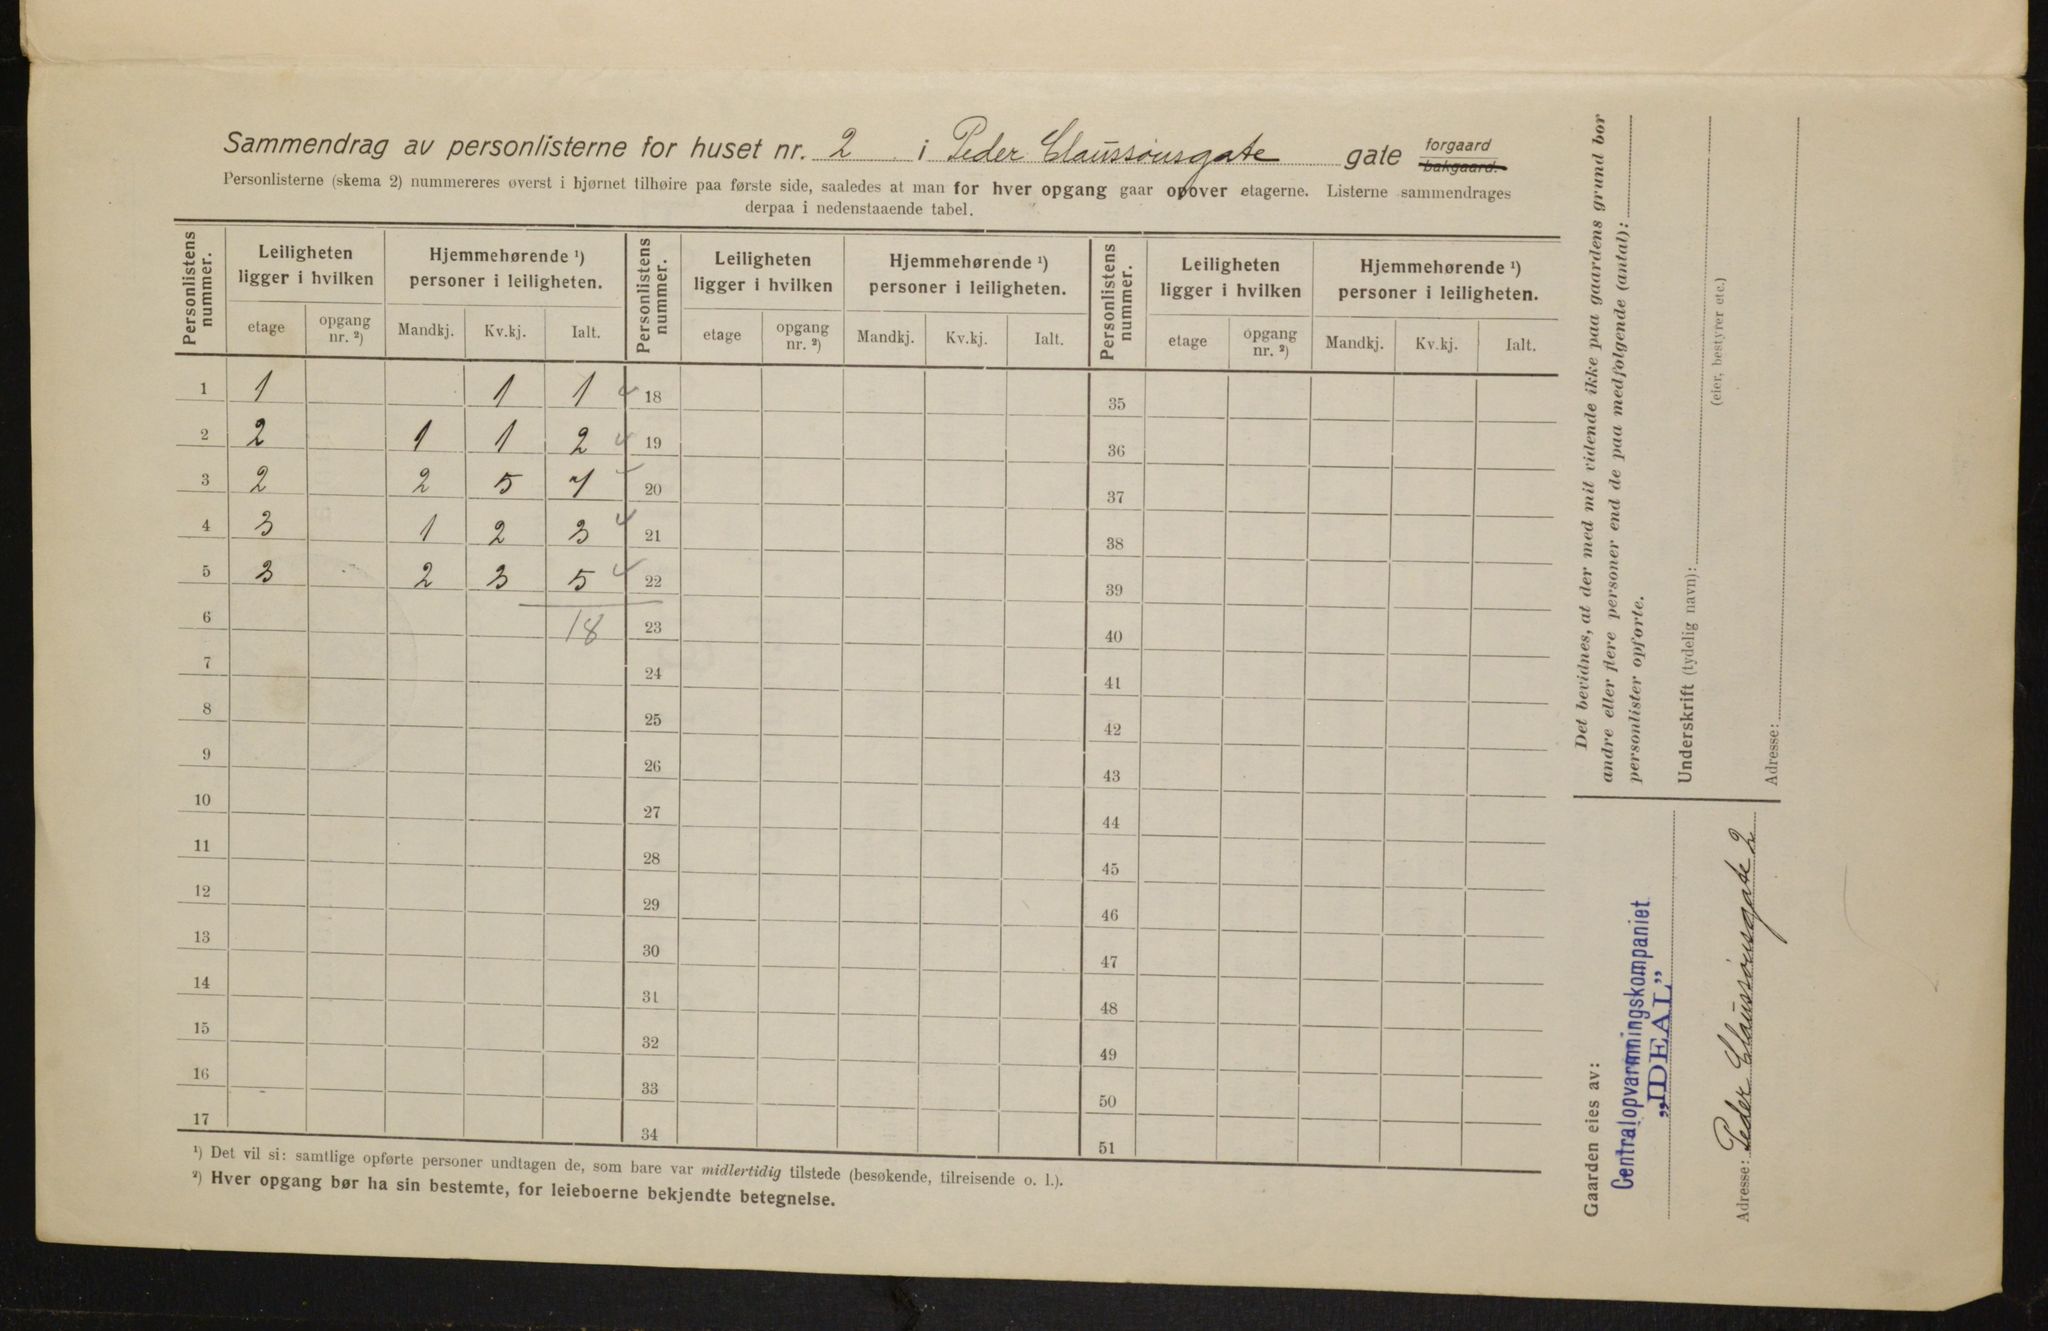 Sammendrag av personlisterne for huset nr. 2 i Peder Claussønsgate gate forgaard bakgaard.
Personlisterne (skema 2) nummereres øverst i hjørnet tilhøire paa første side, saaledes at man for hver opgang gaar opover etagerne. Listerne sammendrages
derpaa i nedenstaaende tabel.
Personlistens nummer. Leiligheten ligger i hvilken Hjemmehørende ¹) personer i leiligheten. Personlistens nummer. Leiligheten ligger i hvilken Hjemmehørende ¹) personer i leiligheten. Personlistens nummer. Leiligheten ligger i hvilken Hjemmehørende ¹) personer i leiligheten.
etage opgang nr. ²) Mandkj. Kv.kj. Ialt. etage opgang nr. ²) Mandkj. Kv.kj. Ialt. etage opgang nr. ²) Mandkj. Kv.kj. Ialt.
1 1 1 1 18 35
2 2 1 1 2 19 36
3 2 2 5 7 20 37
4 3 1 2 3 21 38
5 3 2 3 5 22 39
6 18 23 40
7 24 41
8 25 42
9 26 43
10 27 44
11 28 45
12 29 46
13 30 47
14 31 48
15 32 49
16 33 50
17 34 51
¹) Det vil si: samtlige opførte personer undtagen de, som bare var midlertidig tilstede (besøkende, tilreisende o. l.).
²) Hver opgang bør ha sin bestemte, for leieboerne bekjendte betegnelse.
Det bevidnes, at der med mit vidende ikke paa gaardens grund bor
andre eller flere personer end de paa medfølgende (antal):
personlister opførte.
Underskrift (tydelig navn):
(eier, bestyrer etc.)
Adresse:
Gaarden eies av:
Centralopvarmningskompaniet
„IDEAL”
Adresse: Peder Claussønsgate 2